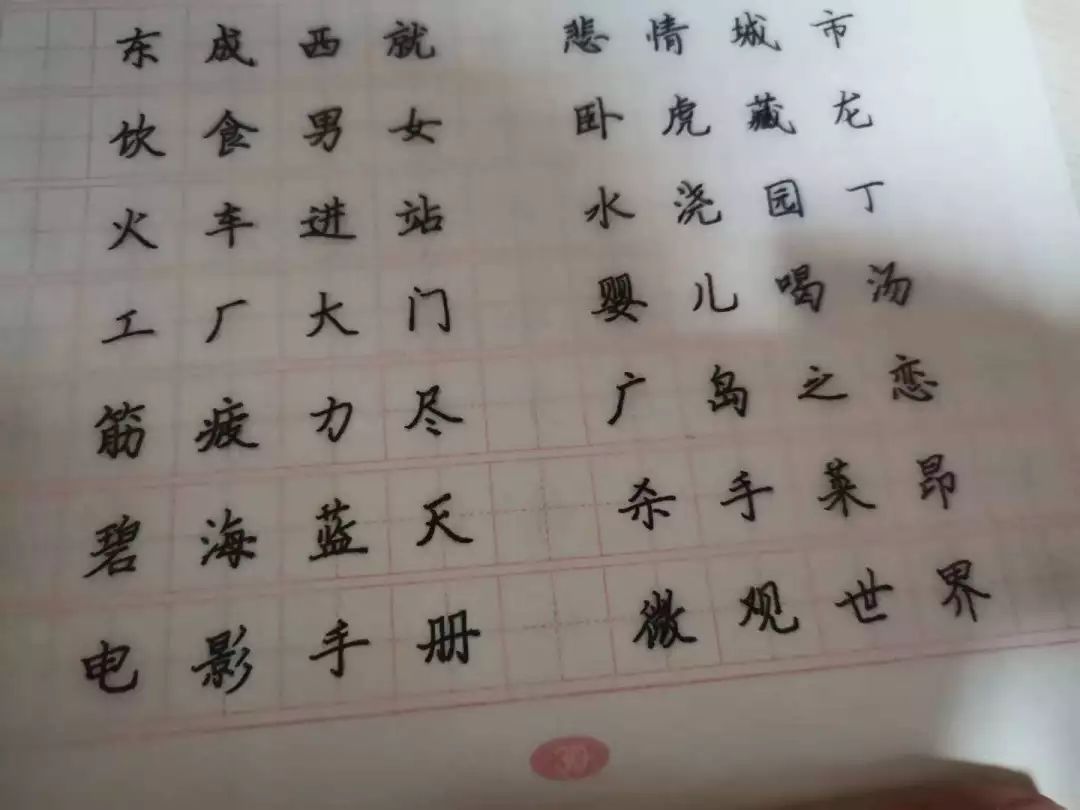 东成西就 悲情城市
饮食男女 卧虎藏龙
火车进站 水浇园丁
工厂大门 婴儿喝汤
筋疲力尽 广岛之恋
碧海蓝天 杀手莱昂
电影手册 微观世界